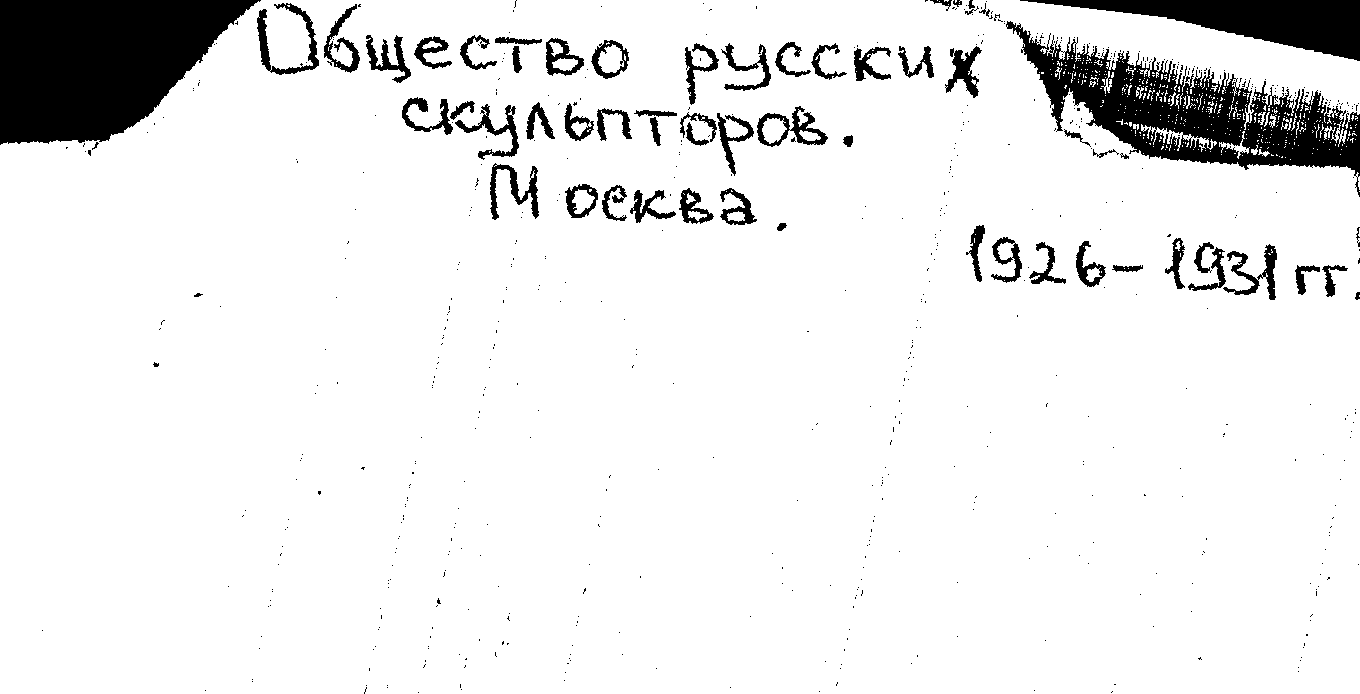 Общество русских
скульпторов.
Москва.
1926-1931 гг.